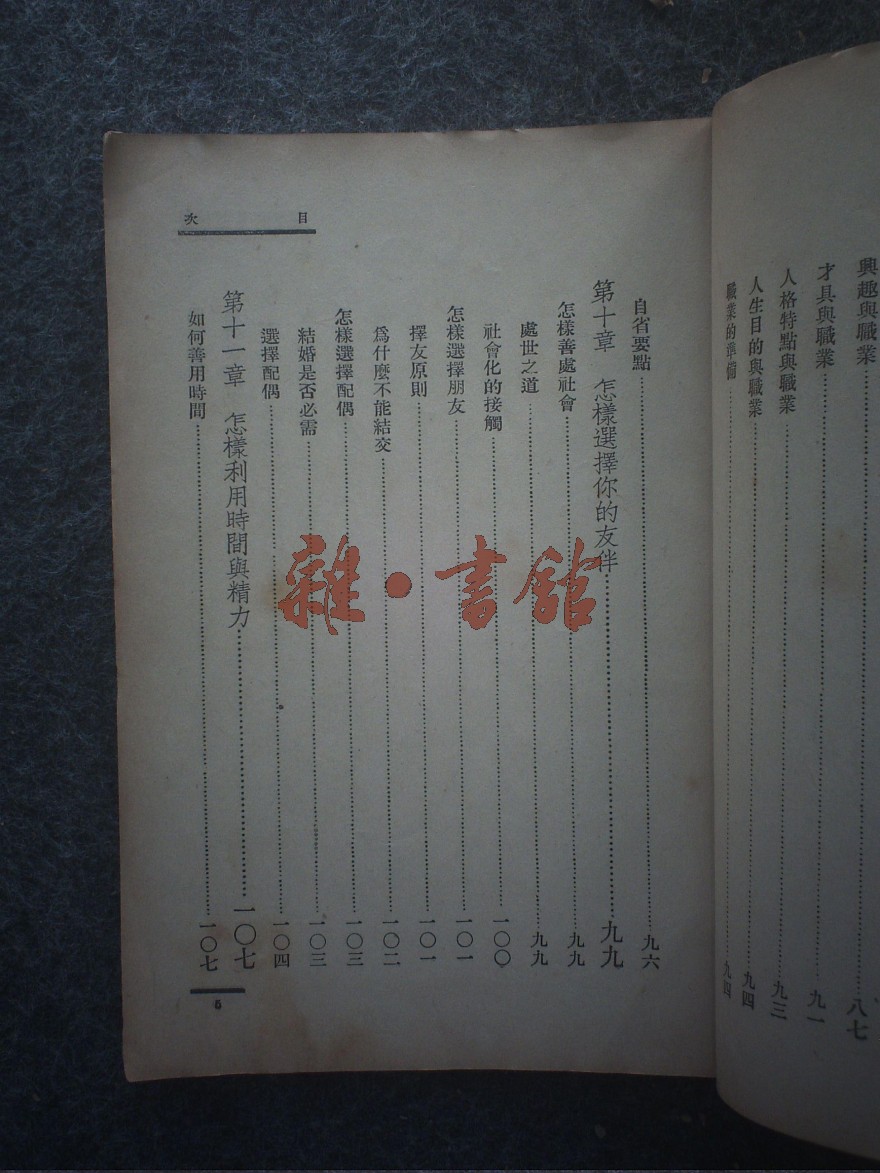 興趣與職業……八七
才具與職業……九一
人格特點與職業……九三
人生目的與職業……九四
職業的準備……九四
目次
自省要點……九六
第十章 怎樣選擇你的友伴……九九
怎樣善處社會……九九
處世之道……九九
社會化的接觸……一〇〇
怎樣選擇朋友……一〇一
擇友原則……一〇一
爲什麼不能結交……一〇二
怎樣選擇配偶……一〇三
結婚是否必需……一〇三
選擇配偶……一〇四
第十一章 怎樣利用時間與精力……一〇七
如何善用時間……一〇七
5
雜·書館